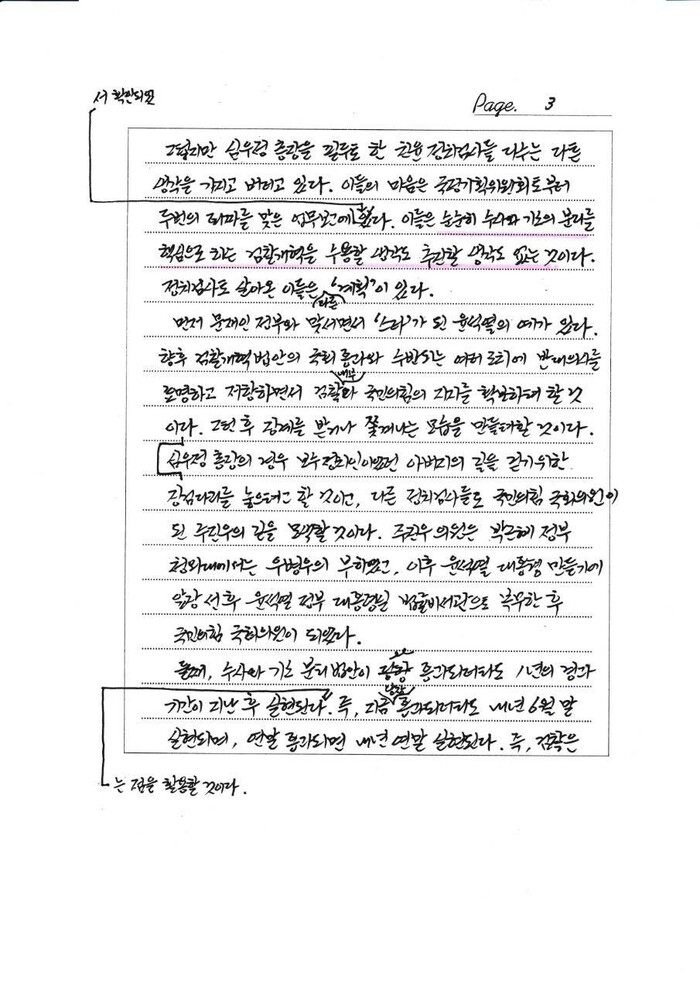 서 확인되었
Page. 3
그렇지만 심우정 총장을 필두로 한 친윤 정치검사들 다수는 다른
생각을 가지고 버티고 있다. 이들의 마음은 국정기획위원회로부터
두번의 퇴짜를 맞은 업무보고에 다. 이들은 순순히 수사와 기소의 분리를
핵심으로 하는 검찰개혁을 수용할 생각도 추진할 생각도 없는 것이다.
정치검사로 살아온 이들은 '계획'이 있다.
다른
먼저 문재인 정부와 맞서면서 '스타'가 된 윤석열의 예가 있다.
향후 검찰개혁법안의 국회 통과와 수반되는 여러 조치에 반대의사를
내부
표명하고 저항하면서 검찰과 국민의힘의 지지를 확보하려 할 것
이다. 그런 후 징계를 받거나 쫓겨나는 모습을 만들려할 것이다.
심우정 총장의 경우 보수정치인이었던 아버지의 길을 걷기위한
징검다리를 놓으려고 할 것이고, 다른 정치검사들도 국민의힘 국회의원이
된 주진우의 길을 모색할 것이다. 주진우 의원은 박근혜 정부
청와대에서는 우병우의 부하였고, 이후 윤석열 대통령 만들기에
앞장 선 후 윤석열 정부 대통령실 법률비서관으로 복무한 후
국민의힘 국회의원이 되었다.
둘째, 수사와 기소 분리 법안이 통과되더라도 1년의 경과
당장
기간이 지난 후 실현된다. 즉, 지금 통과되더라도 내년 6월 말
실현되며, 연말 통과되면 내년 연말 실현된다. 즉, 검찰은
는 점을 활용할 것이다.